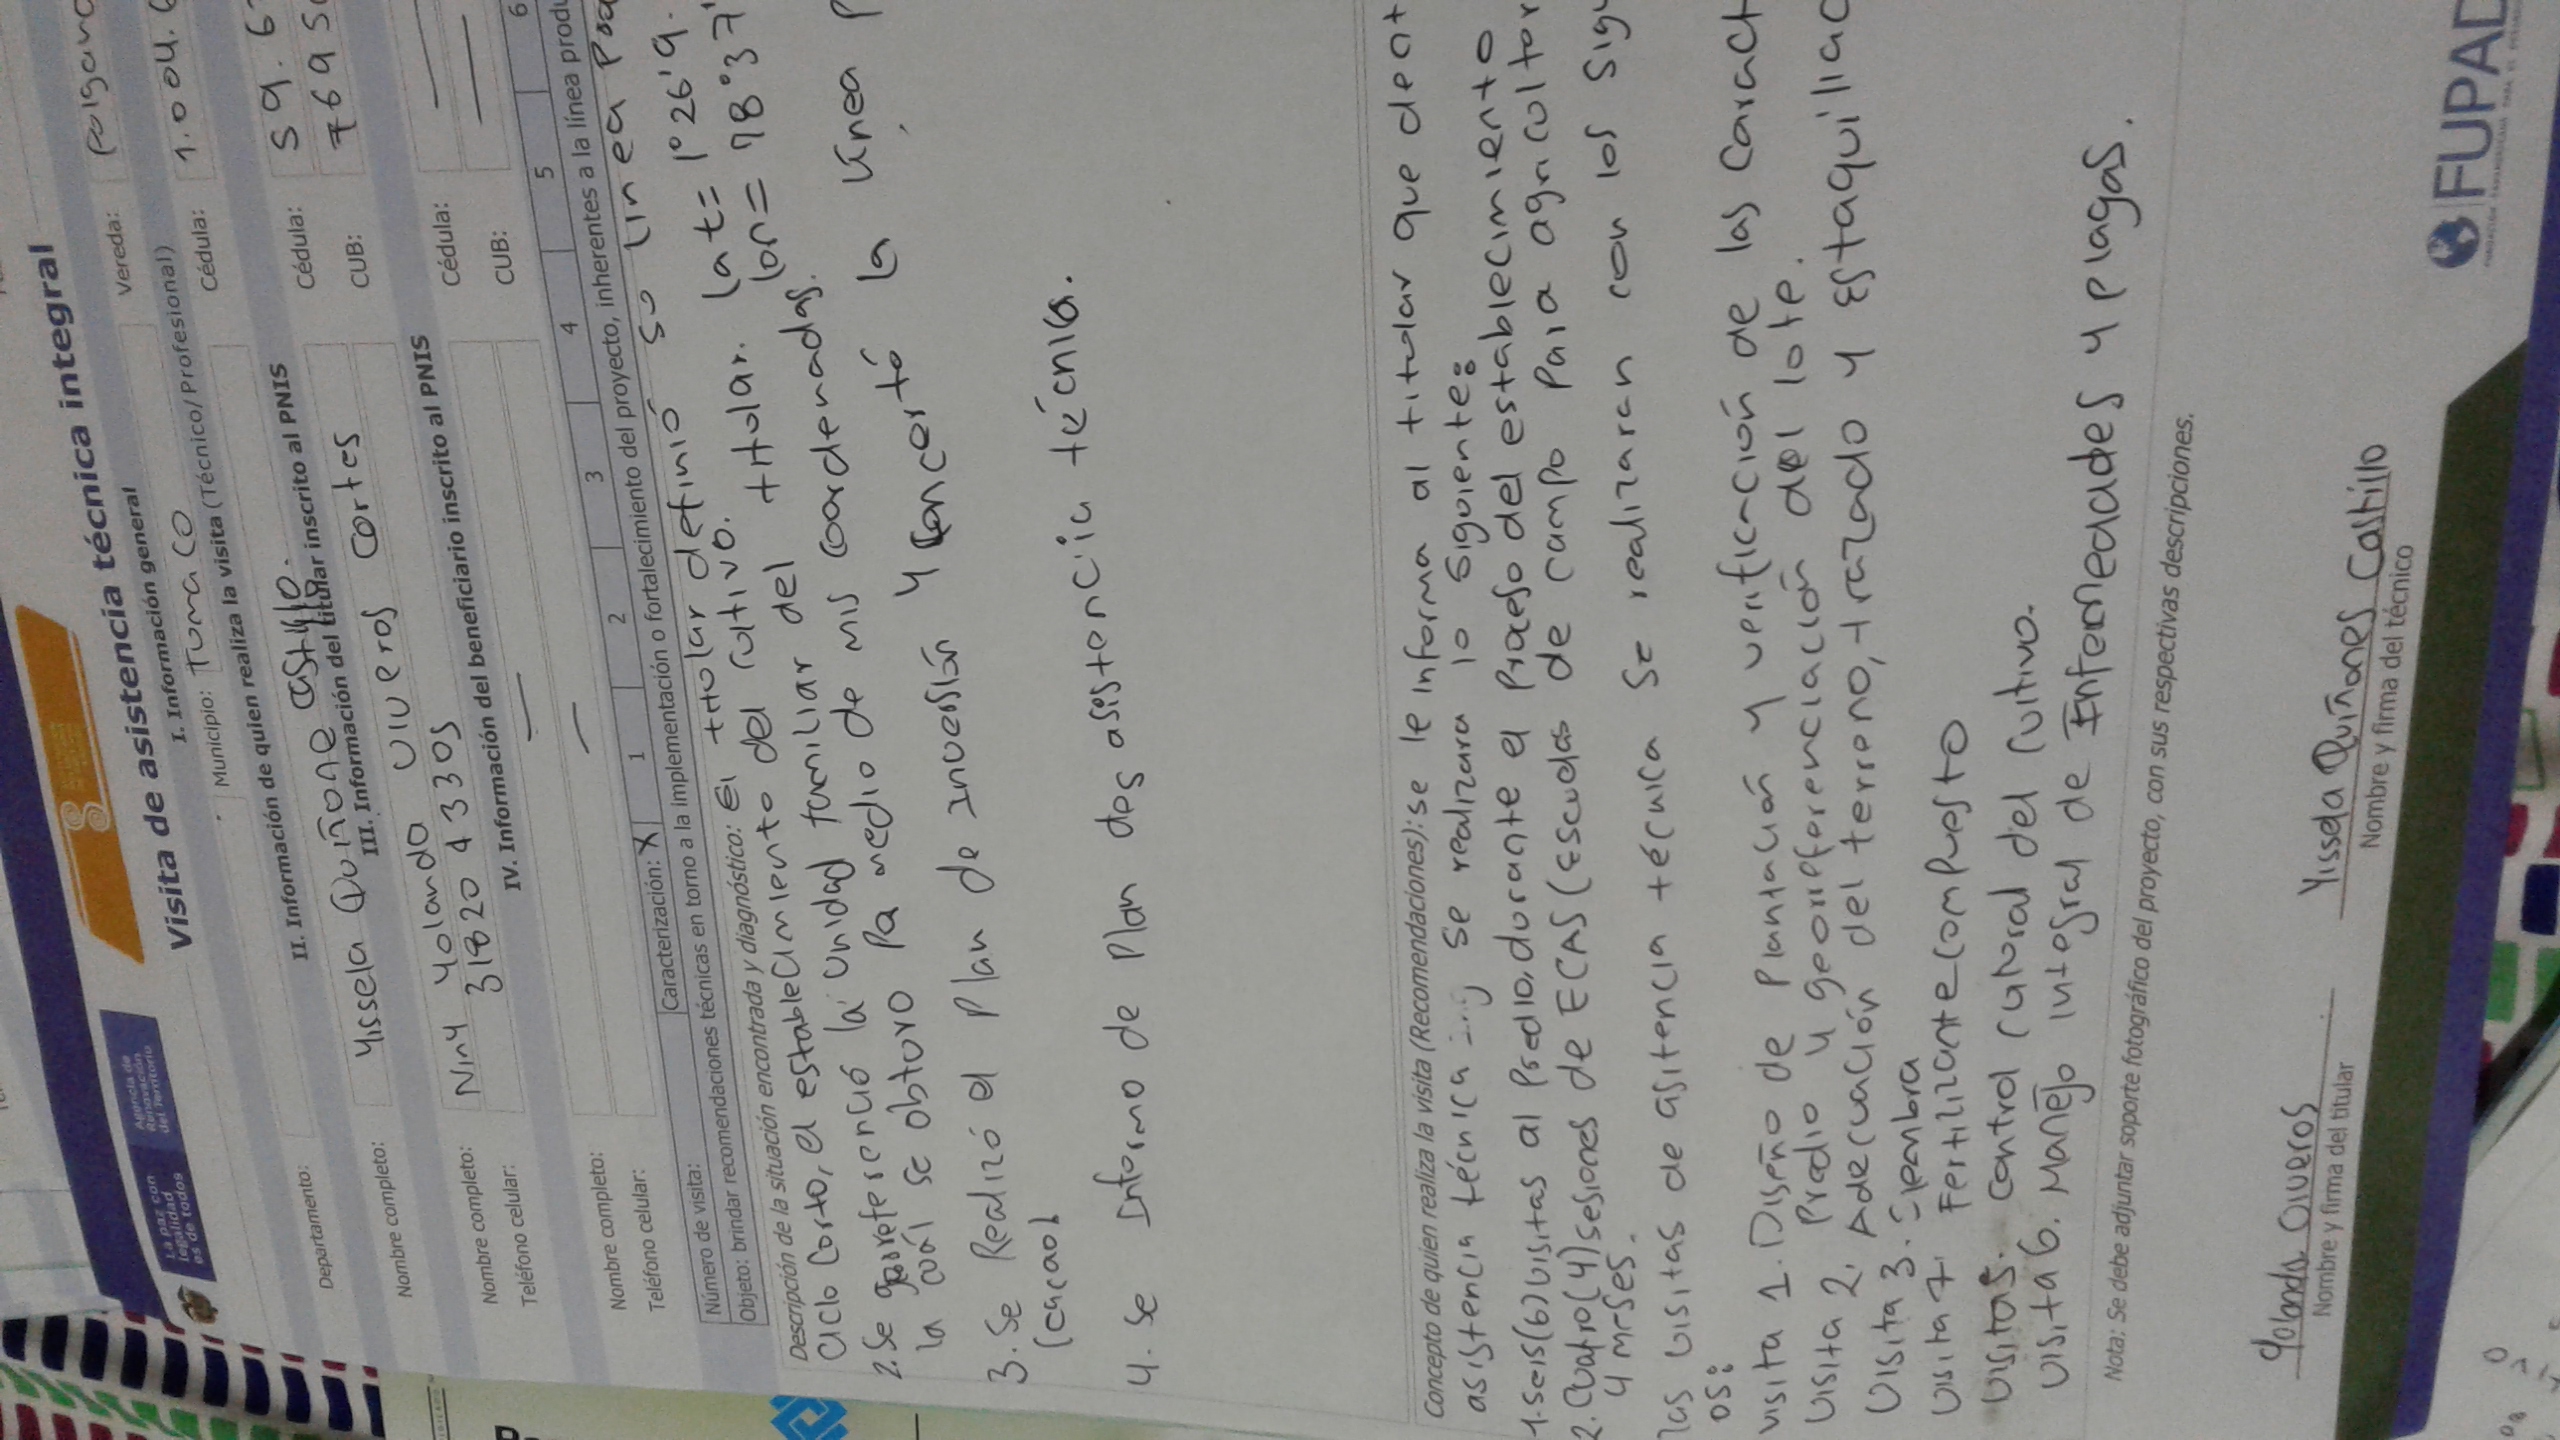 La paz con
legalidad
es de todos
Agencia de
Renovación
del Territorio
Visita de asistencia técnica integral
I. Información general
Departamento:
Municipio: Tumaco
Vereda:
II. Información de quien realiza la visita (Técnico/Profesional)
Nombre completo: Yissela Quiñone Castillo.
Cédula: 1.004.6
III. Información del titular inscrito al PNIS
Nombre completo: Niny Yolanda Viveros Cortes
Cédula: 59.6
Teléfono celular:
CUB:
IV. Información del beneficiario inscrito al PNIS
Nombre completo: —
Cédula: —
Teléfono celular: —
CUB: —
Número de visita: Caracterización: X 1 2 3 4 5 6
Objeto: brindar recomendaciones técnicas en torno a la implementación o fortalecimiento del proyecto, inherentes a la línea produ
Descripción de la situación encontrada y diagnóstico: El titular definió su linea
Ciclo Corto, el establecimiento del cultivo.
2. Se georeferenció la unidad familiar del titular. Lat= 1°26'9.
la cual se obtuvo Pa medio de mis coordenadas. lon= 78°37'
3. Se Realizó el Plan de Inversión y Concertó la línea P
(cacao)
4. Se Informo de Plan des asistencia técnica.
Concepto de quien realiza la visita (Recomendaciones): se le informa al titular que
asistencia técnica se realizara lo siguiente:
1. seis (6) visitas al Predio, durante el Proceso del establecimiento
2. Cuatro (4) sesiones de ECAS (Escuelas de campo Para agricultor
4 meses.
las visitas de asitencia técnica se realizaran con los sigu
os:
visita 1. Diseño de Plantación y verificación de las caract
Predio y georreferenciación del lote.
visita 2. Adecuación del terreno, trazado y Estaquillad
visita 3. Siembra
visita 4 Fertilizante compuesto
visita 5. control cultural del cultivo.
visita 6. Manejo integral de Enfermedades y plagas.
Nota: Se debe adjuntar soporte fotográfico del proyecto, con sus respectivas descripciones.
Yolanda Viveros
Nombre y firma del titular
Yissela Quiñones Castillo
Nombre y firma del técnico
FUPAD